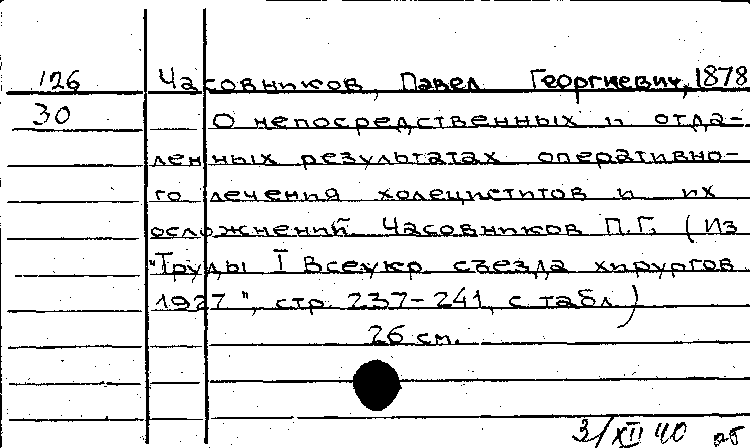 126 Часовников, Павел Георгиевич, 1878
30 О непосредственных и отда-
ленных результатах оперативно-
го лечения холециститов и их
осложнений. Часовников П.Г. (Из
"Труды I Всеукр. съезда хирургов
1927", стр. 237-241, с табл.)
26 см.
3/XII 40